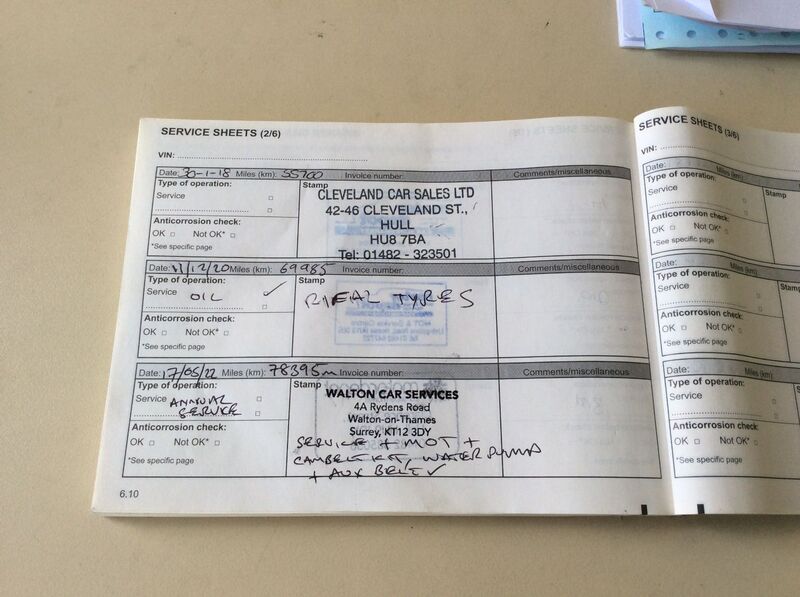 SERVICE SHEETS (2/6)
VIN:
Date: 30-1-18 Miles (km): 55700 Invoice number: Comments/miscellaneous
Type of operation: Stamp
Service
CLEVELAND CAR SALES LTD
42-46 CLEVELAND ST.,
HULL
HU8 7BA
Tel: 01482 - 323501
Anticorrosion check:
OK Not OK*
*See specific page
Date: 11/12/20 Miles (km): 69985 Invoice number: Comments/miscellaneous
Type of operation: Stamp
Service OIL ✓
TYRES
Anticorrosion check:
OK Not OK*
*See specific page
Date: 17/05/22 Miles (km): 78395m Invoice number: Comments/miscellaneous
Type of operation: Stamp
Service ANNUAL
SERVICE
WALTON CAR SERVICES
4A Rydens Road
Walton-on-Thames
Surrey, KT12 3DY
SERVICE + MOT +
CAMBELT KIT, WATER PUMP
+ AUX BELT ✓
Anticorrosion check:
OK Not OK*
*See specific page
6.10
SERVICE SHEETS (3/6)
VIN:
Date:
Type of operation: Stamp
Service
Anticorrosion check:
OK Not OK*
*See specific page
Date:
Type of operation: Stamp
Service
Anticorrosion check:
OK Not OK*
*See specific page
Date:
Type of operation: Stamp
Service
Anticorrosion check:
OK Not OK*
*See specific page